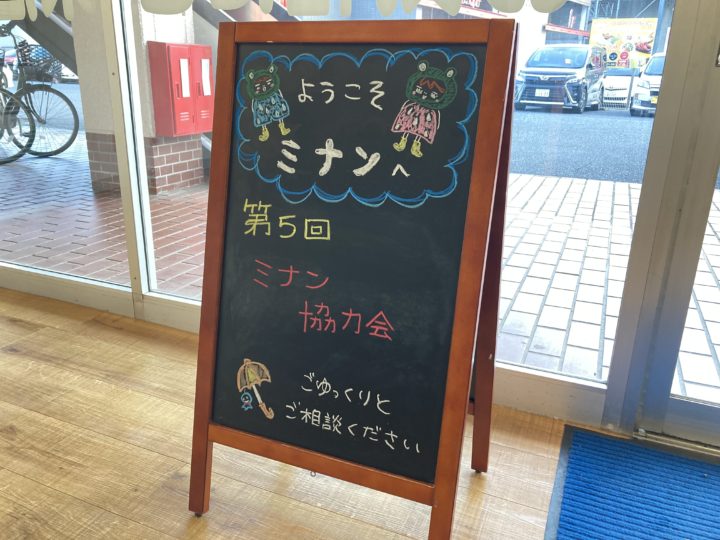 ようこそ
ミナンへ
第5回
ミナン
協力会
ごゆっくりと
ご相談ください